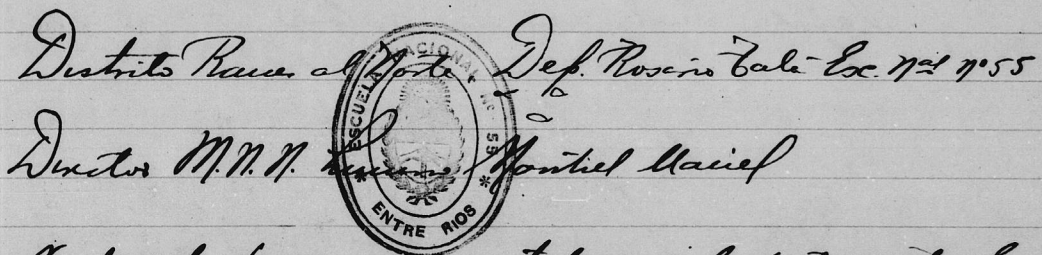 Distrito Raices al Norte Dep. Rosario Tala Esc. Nal nº 55
Director M.N.N. Luciano Montiel Maciel
ESCUELA NACIONAL Nº 55
* ENTRE RIOS *